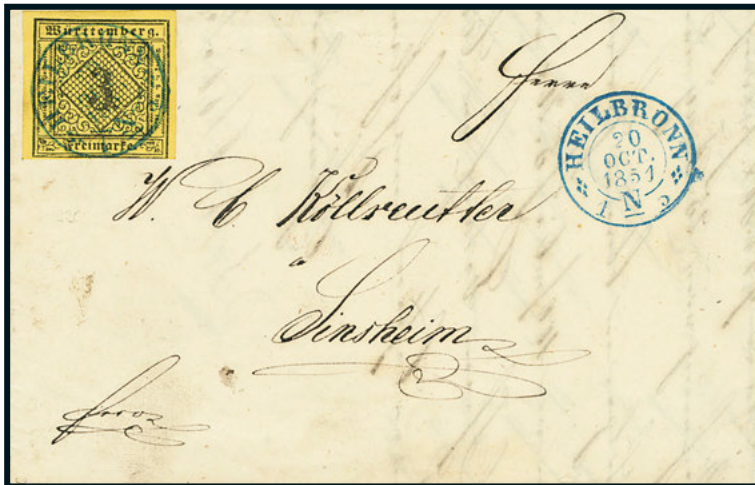 Württemberg.
3
Freimarke.
HEILBRONN
20
OCT.
1851
N
Herrn
W. C. Köllreutter
Sinsheim
franco